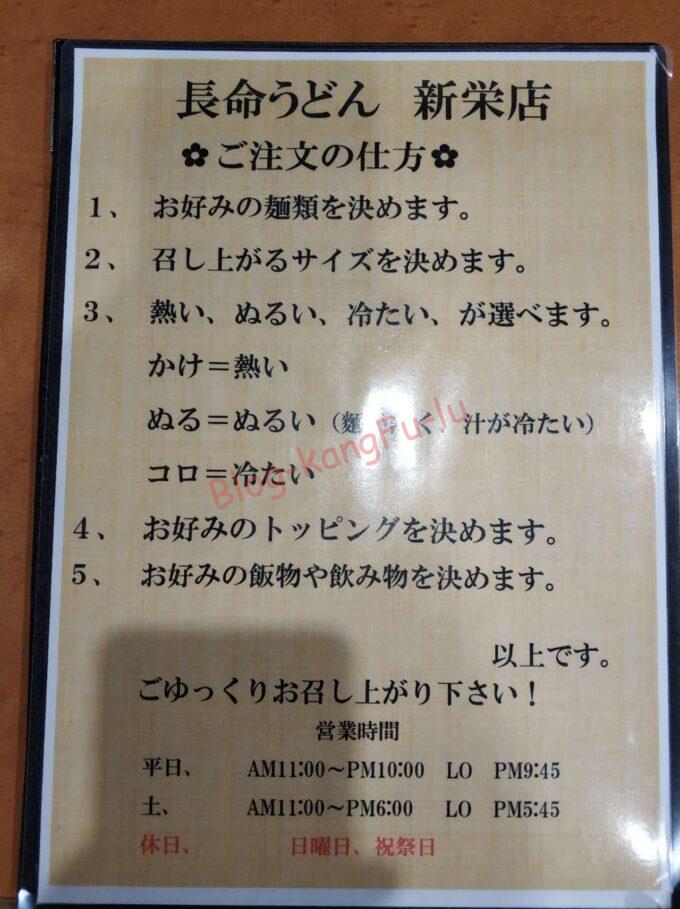 長命うどん 新栄店
✿ご注文の仕方✿
1、 お好みの麺類を決めます。
2、 召し上がるサイズを決めます。
3、 熱い、ぬるい、冷たい、が選べます。
かけ＝熱い
ぬる＝ぬるい（麺 く、汁が冷たい）
コロ＝冷たい
Blog-KangFu-lu
4、 お好みのトッピングを決めます。
5、 お好みの飯物や飲み物を決めます。
以上です。
ごゆっくりお召し上がり下さい！
営業時間
平日、 AM11:00～PM10:00 LO PM9:45
土、 AM11:00～PM6:00 LO PM5:45
休日、 日曜日、祝祭日